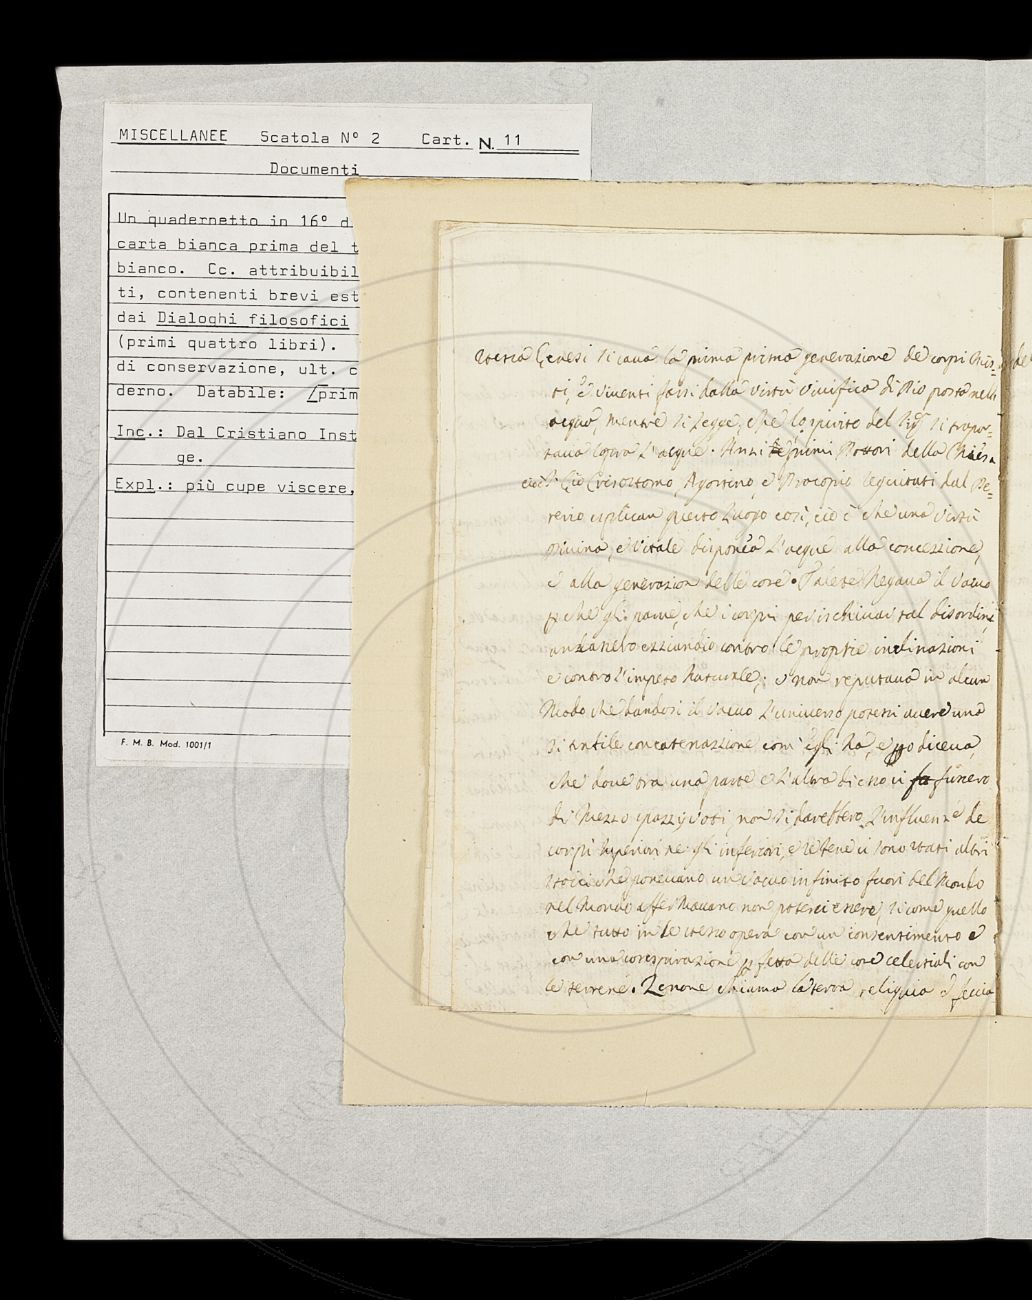 MISCELLANEE Scatola N° 2 Cart. N. 11
Documenti
Un quadernetto in 16° d
carta bianca prima del t
bianco. Cc. attribuibil
ti, contenenti brevi est
dai Dialoghi filosofici
(primi quattro libri).
di conservazione, ult. c
derno. Databile: /prim
Inc.: Dal Cristiano Inst
ge.
Expl.: più cupe viscere,
F. M. B. Mod. 1001/1
stessa Genesi si caua la prima prima generazione de corpi mis-
ti, e viuenti farsi dalla virtù viuifica di Dio posta nelle
acque, mentre si legge, che lo spirito del Sig.r si traspor-
taua sopra l'acque. Anzi primi Dottori della Chiesa
cioè Crisostomo, Agostino, e Procopio seguitati dal Pe-
rerio esplican questo luogo così, ciò è che una virtù
diuina, e vitale disponea l'acque alla concezzione,
e alla generazion delle cose. Talete negaua il vacuo
che gli pareue, che i corpi per ischiuar tal disordine
andassero eziandio contro le proprie inclinazioni
e contro l'impeto naturale; e non reputaua in alcun
modo che dandosi il vacuo l'uniuerso potessi auere una
simile concatenazione com' egli ha, e dicea,
che doue tra una parte e l'altra di esso ci fussero
di mezzo spazzij voti, non si darebbero l'influenze de
corpi superiori ne gli inferiori, e se bene ci sono stati altri
Stoici che poneuano un vacuo infinito fuori del Mondo
nel Mondo affermauano non poterci essere, si come quello
che tutto in se stesso opera con un consentimento e
con una cospirazione pfetta delle cose celestiali con
le terrene. Zenone chiama la terra reliquia e feccia